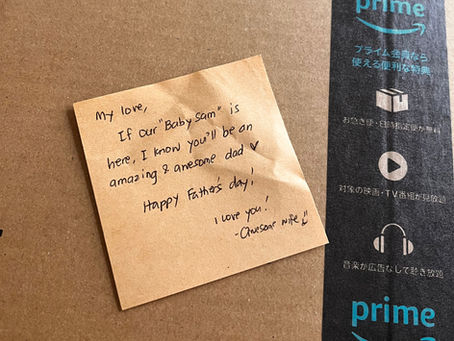 My love,
If our "Baby Sam" is
here, I know you'll be an
amazing & awesome dad
Happy Father's day!
I love you!
-Awesome wife
prime
プライム会員なら
使える便利な特典
お急ぎ便・日時指定便が無料
対象の映画・TV番組が見放題
音楽が広告なしで聴き放題
prime